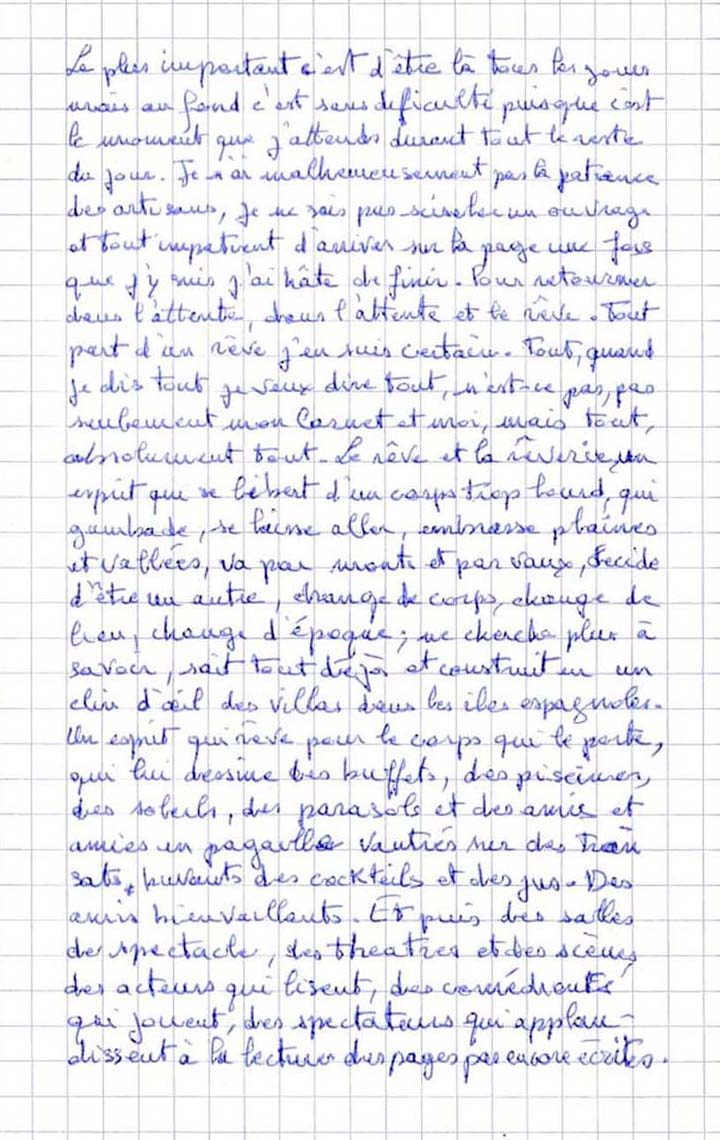 Le plus important c'est d'être là tous les jours
mais au fond c'est sans difficulté puisque c'est
le moment que j'attends durant tout le reste
du jour. Je n'ai malheureusement pas la patience
des artisans, je ne sais pas ciseler un ouvrage
et tout impatient d'arriver sur la page une fois
que j'y suis j'ai hâte de finir. Pour retourner
dans l'attente, dans l'attente et le rêve. Tout
part d'un rêve j'en suis certain. Tout, quand
je dis tout je veux dire tout, n'est-ce pas, pas
seulement mon Carnet et moi, mais tout,
absolument tout. Le rêve et la rêverie, un
esprit qui se libert d'un corps trop lourd, qui
gambade, se laisse aller, embrasse plaines
et vallées, va par monts et par vaux, décide
d'être un autre, change de corps, change de
lieu, change d'époque; ne cherche plus à
savoir, sait tout déjà et construit en un
clin d'œil des villas dans les îles espagnoles.
Un esprit qui rêve pour le corps qui le porte,
qui lui dessine des buffets, des piscines,
des soleils, des parasols et des amis et
amies en pagaille vautrés sur des tran
sats, buvants des cocktails et des jus. Des
amis bienvaillants. Et puis des salles
de spectacle, des theatres et des scènes,
des acteurs qui lisent, des comédients
qui jouent, des spectateurs qui applau-
dissent à la lecture des pages pas encore écrites.